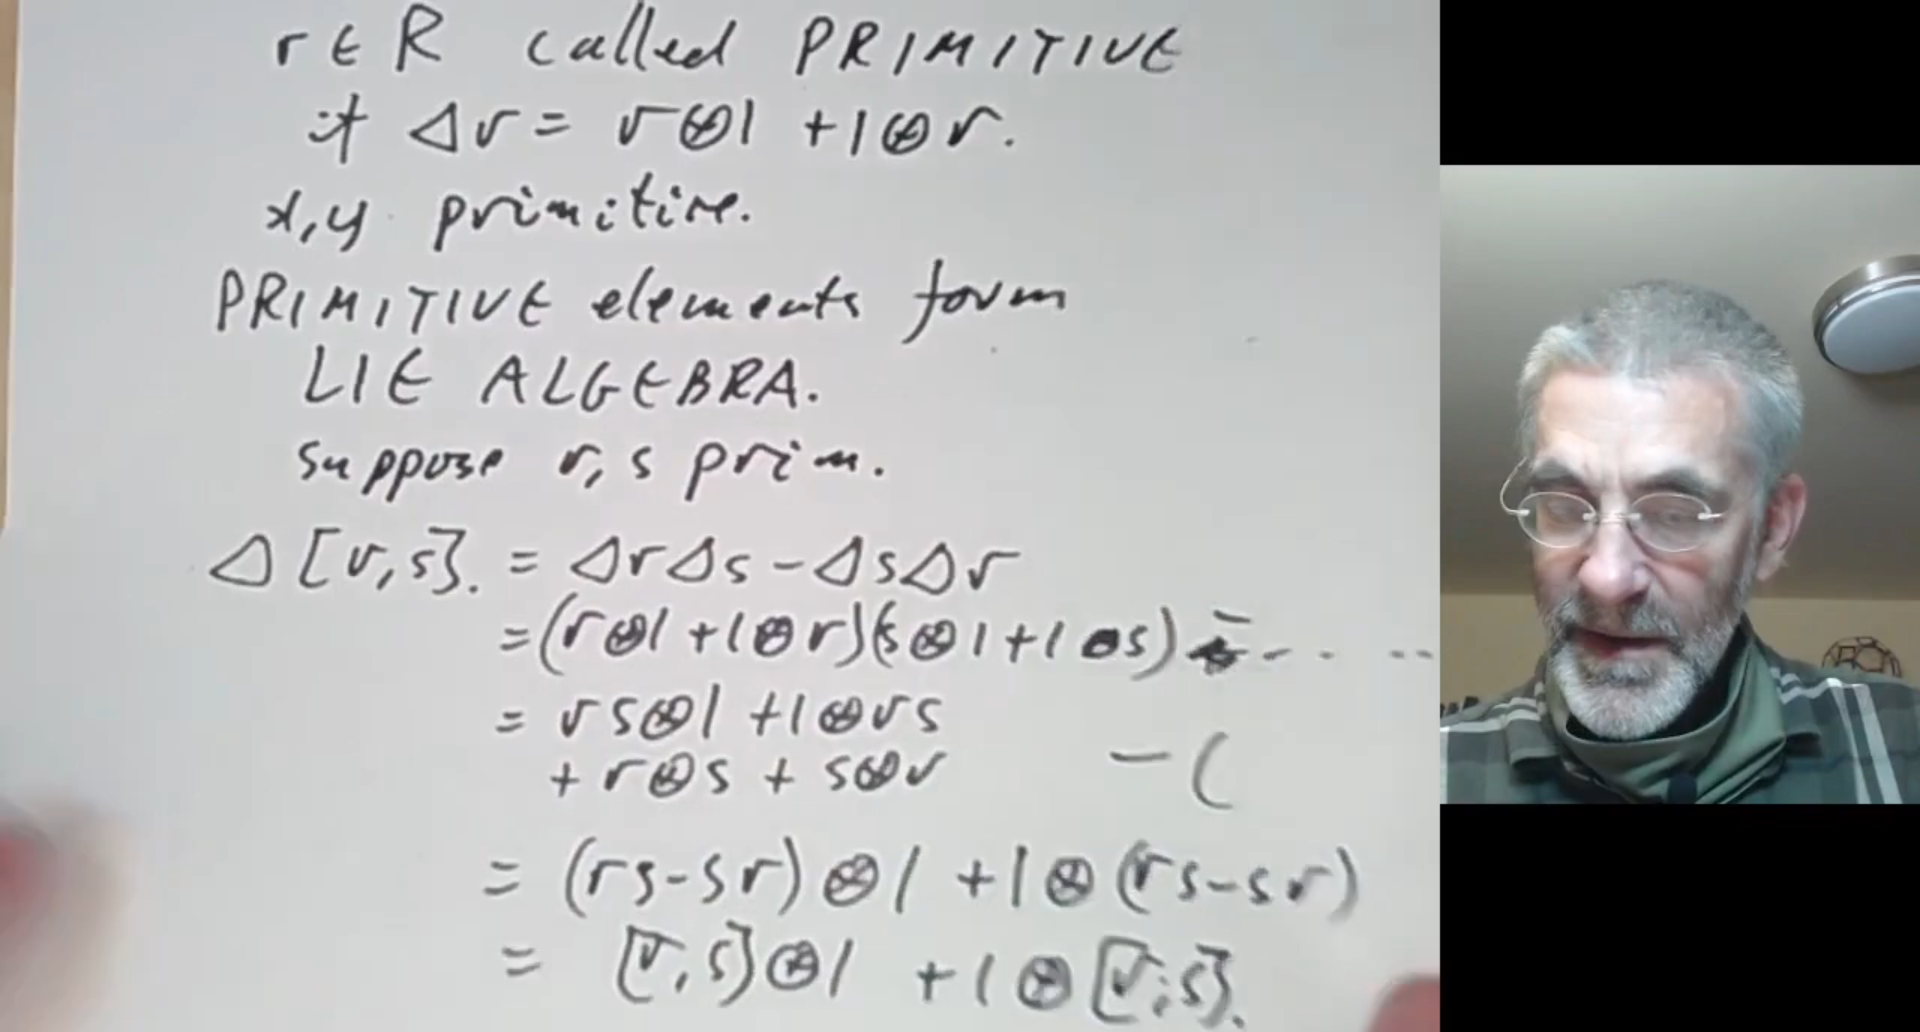 r ∈ R called PRIMITIVE
if Δr = r⊗1 + 1⊗r.
x, y primitive.
PRIMITIVE elements form
LIE ALGEBRA.
suppose r, s prim.
Δ[r, s]. = ΔrΔs - ΔsΔr
= (r⊗1 + 1⊗r)(s⊗1 + 1⊗s) - - . . . .
= rs⊗1 + 1⊗rs
+ r⊗s + s⊗r - (
= (rs-sr)⊗1 + 1⊗(rs-sr)
= [r, s]⊗1 + 1⊗[r, s].